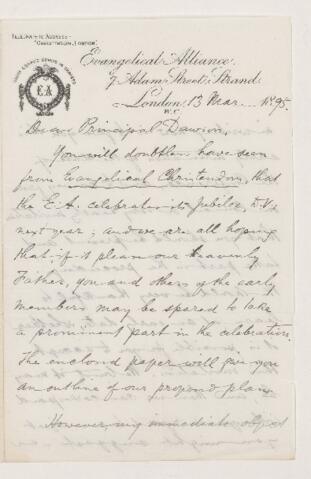 TELEGRAPHIC ADDRESS—
"CHRISTENDOM, LONDON"
Evangelical Alliance.
7, Adam Street, Strand
London, 13 Mar 1895.
W.C.
E.A
Dear Principal Dawson,
You will doubtless have seen
from Evangelical Christendom, that
the E.A. celebrates its Jubilee, D.V.,
next year; and we are all hoping
that, if it please our heavenly
Father, you and others of the early
members may be spared to take
a prominent part in the celebration.
The enclosed paper will give you
an outline of our proposed plan.
However, my immediate object